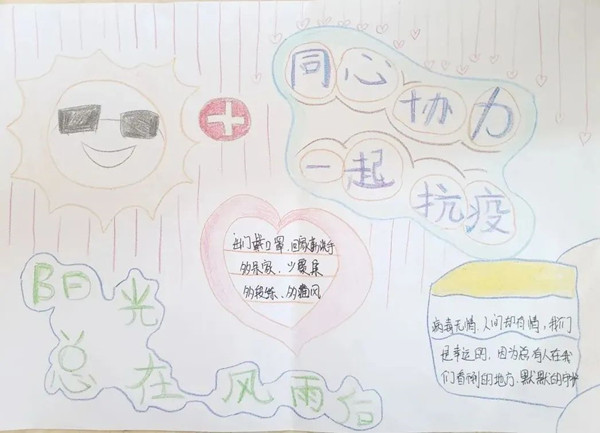 同心协力
一起抗疫
出门戴口罩、回家勤洗手
多居家、少聚集
多锻炼、多通风
阳光
总在风雨后
病毒无情、人间却有情，我们
是幸运的，因为总有人在我
们看不到的地方、默默的守护